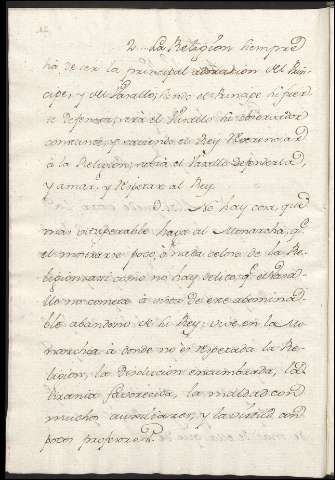 2. La Religion siempre
há de ser la principal atencion del Prin
cipe, y del Vasallo; siendo el Principe
se defensor, será el Vasallo su observador
constante, y haciendo el Rey venerar
á la Religion, sabrá el Vasallo defenderla,
y amar, y respetar al Rey.
3. No hay cosa, que
mas vituperable haga al Monarcha, qe.
el mostrarse poco á nada celoso de la Re-
ligion no hay delito, qe. el Vasa-
llo no cometa á vista de ese abomina-
ble abandono de su Rey: vive en la Mo-
narchia á donde no és respetada la Re-
ligion, la disolucion encumbrada, la
tirania favorecida, la maldad con
muchos auxiliares, y la virtud con
pocos profesores.